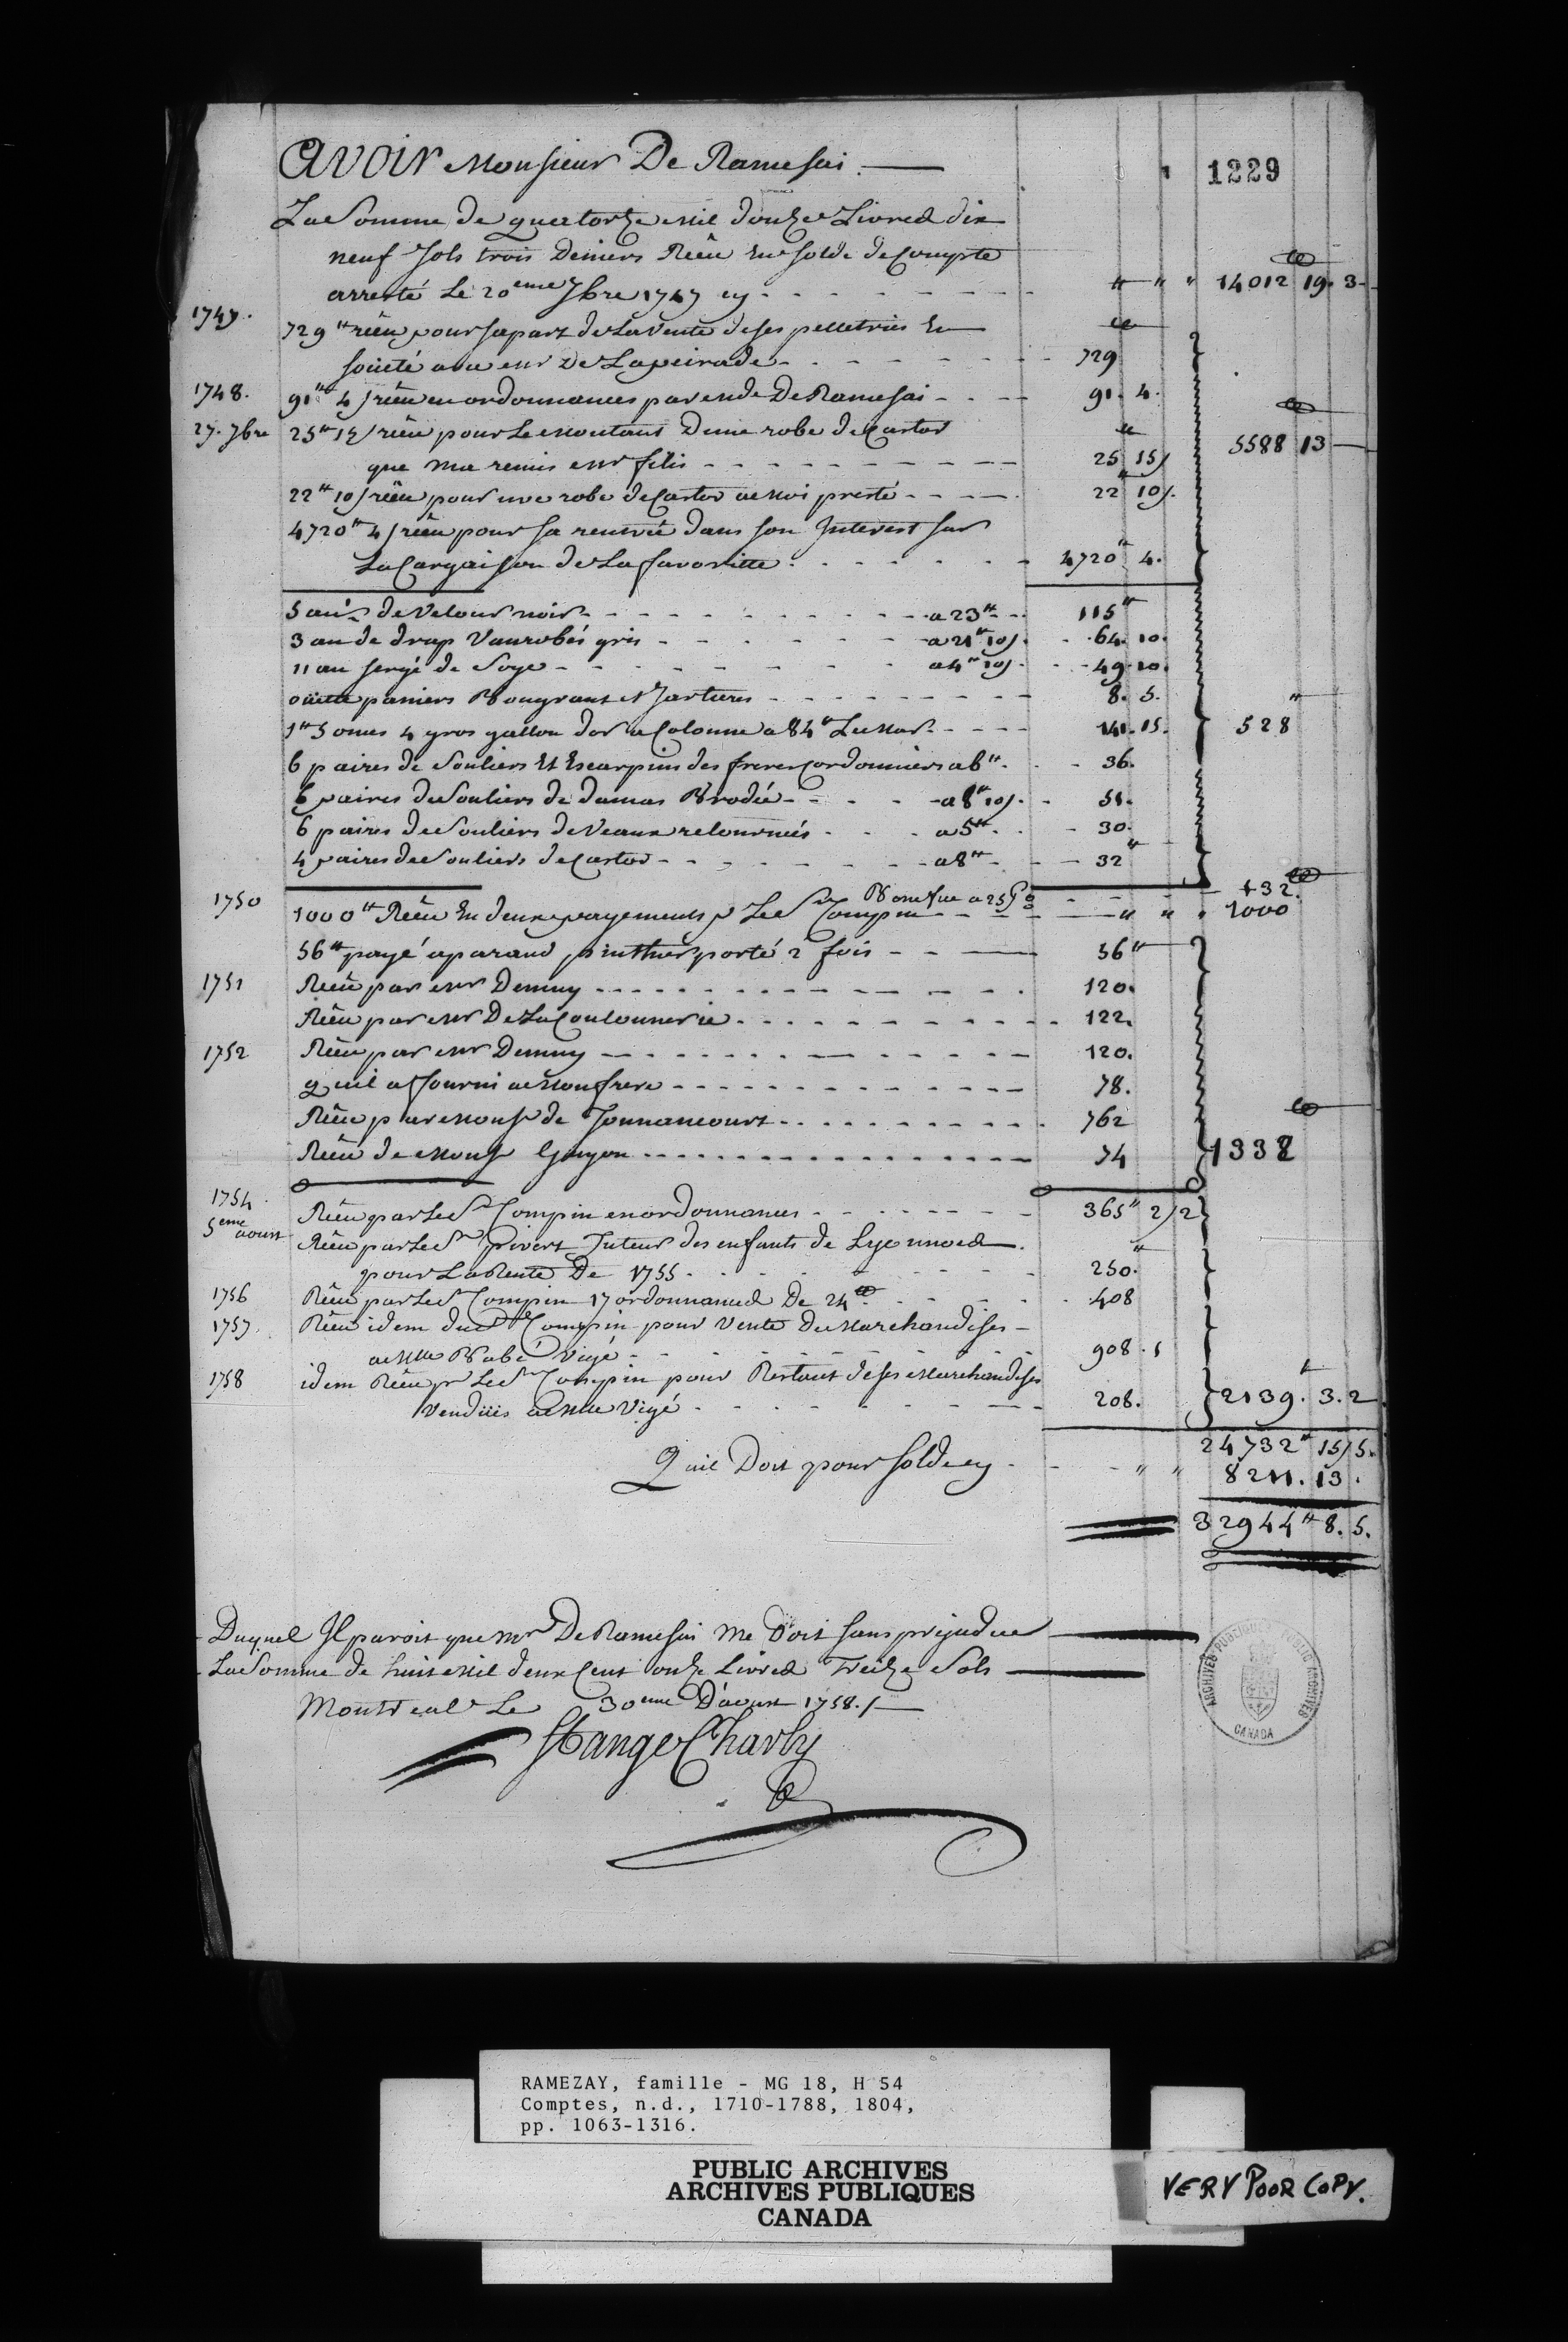 1229
Avoir Monsieur De Ramesai.
La Somme de quatorze mil douze Livres dix
neuf sols trois Deniers Reçu En solde de Compte
arresté Le 20eme 7bre 1747 cy - 14012 19. 3
1747. 729tt reçu pour sa part de La vente de ses pelletries En
société avec mr De Lapeirade - 729
1748. 91tt 4s reçu en ordonnances par mde De Ramesai - 91. 4.
27. 7bre 25tt 15s reçu pour Le montant Dune robe de Castor
que ma remis mr filis - 25 15s 5588 13
22tt 10s reçu pour une robe de Castor a moi presté - 22 10s.
4720tt 4s reçu pour sa rentrée dans son Interest sur
La Cargaison de La favoritte. 4720tt 4.
5 au's de velour noir - a 23tt - 115tt
3 au de drap Vanrobés gris - a 21tt 10s. - 64. 10.
11 au serge de Soye - a 4tt 10s - 49. 10.
ouette paniers Bougrant et Jartieres - 8. 5.
1tt 5 onces 4 gros gallon dor a Colonne a 84tt Le mar. - 141. 15. 528
6 paires de Souliers Et Escarpins des freres Cordonniers a 6tt. - 36.
6 paires de Souliers de damas Brodée - a 8tt 10s. - 51.
6 paires de Souliers de Veaux retournées - a 5tt. - 30.
4 paires de Souliers de Castor - a 8tt - 32tt
a 25 P% - 132.
1750 1000tt Reçu En deux payements p Le Sr Compin - 1000
56tt payé a parant porté 2 fois - 56tt
1751 Reçu par mr Demuy - 120.
Reçu par mr De La Coulonnerie - 122.
1752 Reçu par mr Demuy - 120.
quil a fourni a mon frere - 78.
Reçu par monsr de Tonnancourt - 762
Reçu de monsr Guyon - 74 1332
1754 Reçu par Le Sr Compin en ordonnances - 365tt 2s 2
5eme aoust Reçu par Le Sr privert Tuteur des enfants de
pour La Rente De 1755 - 250.tt
1756 Reçu par Le Sr Compin 17 ordonnances De 24tt - 408
1757. Reçu idem dud. Compin pour vente de marchandises
a Mlle Babé Vigé - 908. 1
1758 idem Reçu pr Le Sr Compin pour Restant de ses marchandises
Vendües a Mlle Vigé - 208. 2139. 3. 2
24732tt 15s 5.
Quil Doit pour solde cy - 8211. 13.
32944tt 8. 5.
Duquel Il paroit que Mr De Ramesai me Doit sans prejudice
La Somme de huit mil deux Cent onze Livres Treize Sols
Montreal Le 30eme D'aoust 1758.
St ange Charly
ARCHIVES PUBLIQUES PUBLIC ARCHIVES
CANADA
RAMEZAY, famille - MG 18, H 54
Comptes, n.d., 1710-1788, 1804,
pp. 1063-1316.
PUBLIC ARCHIVES
ARCHIVES PUBLIQUES
CANADA
VERY POOR COPY.